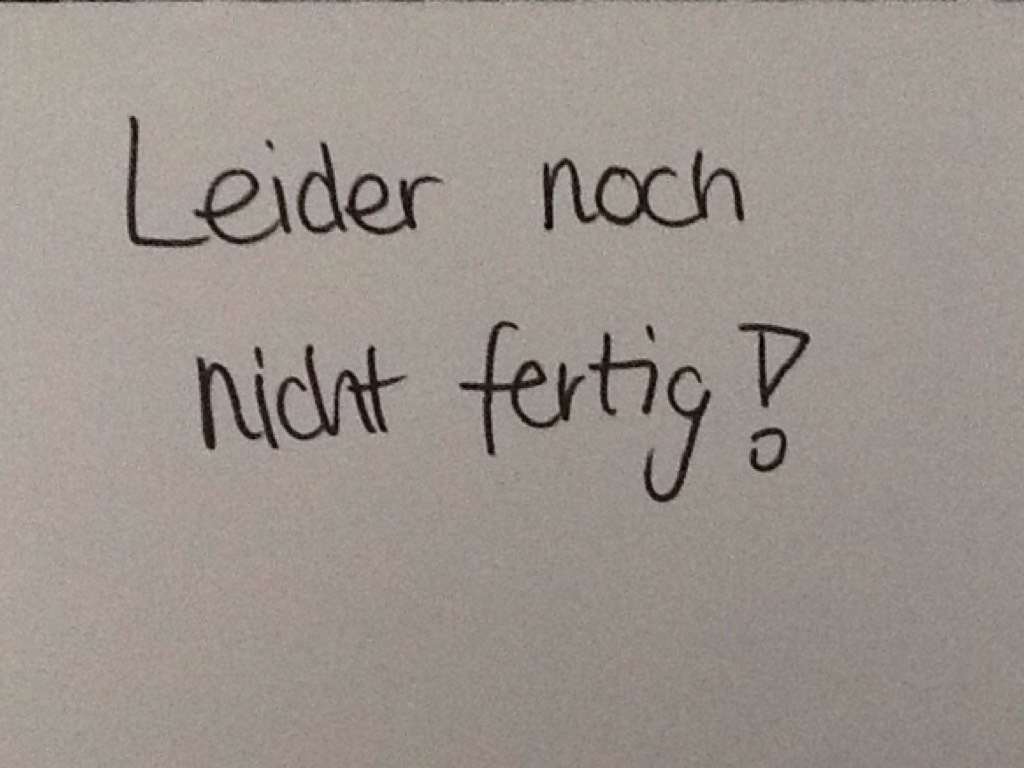 Leider noch
nicht fertig!